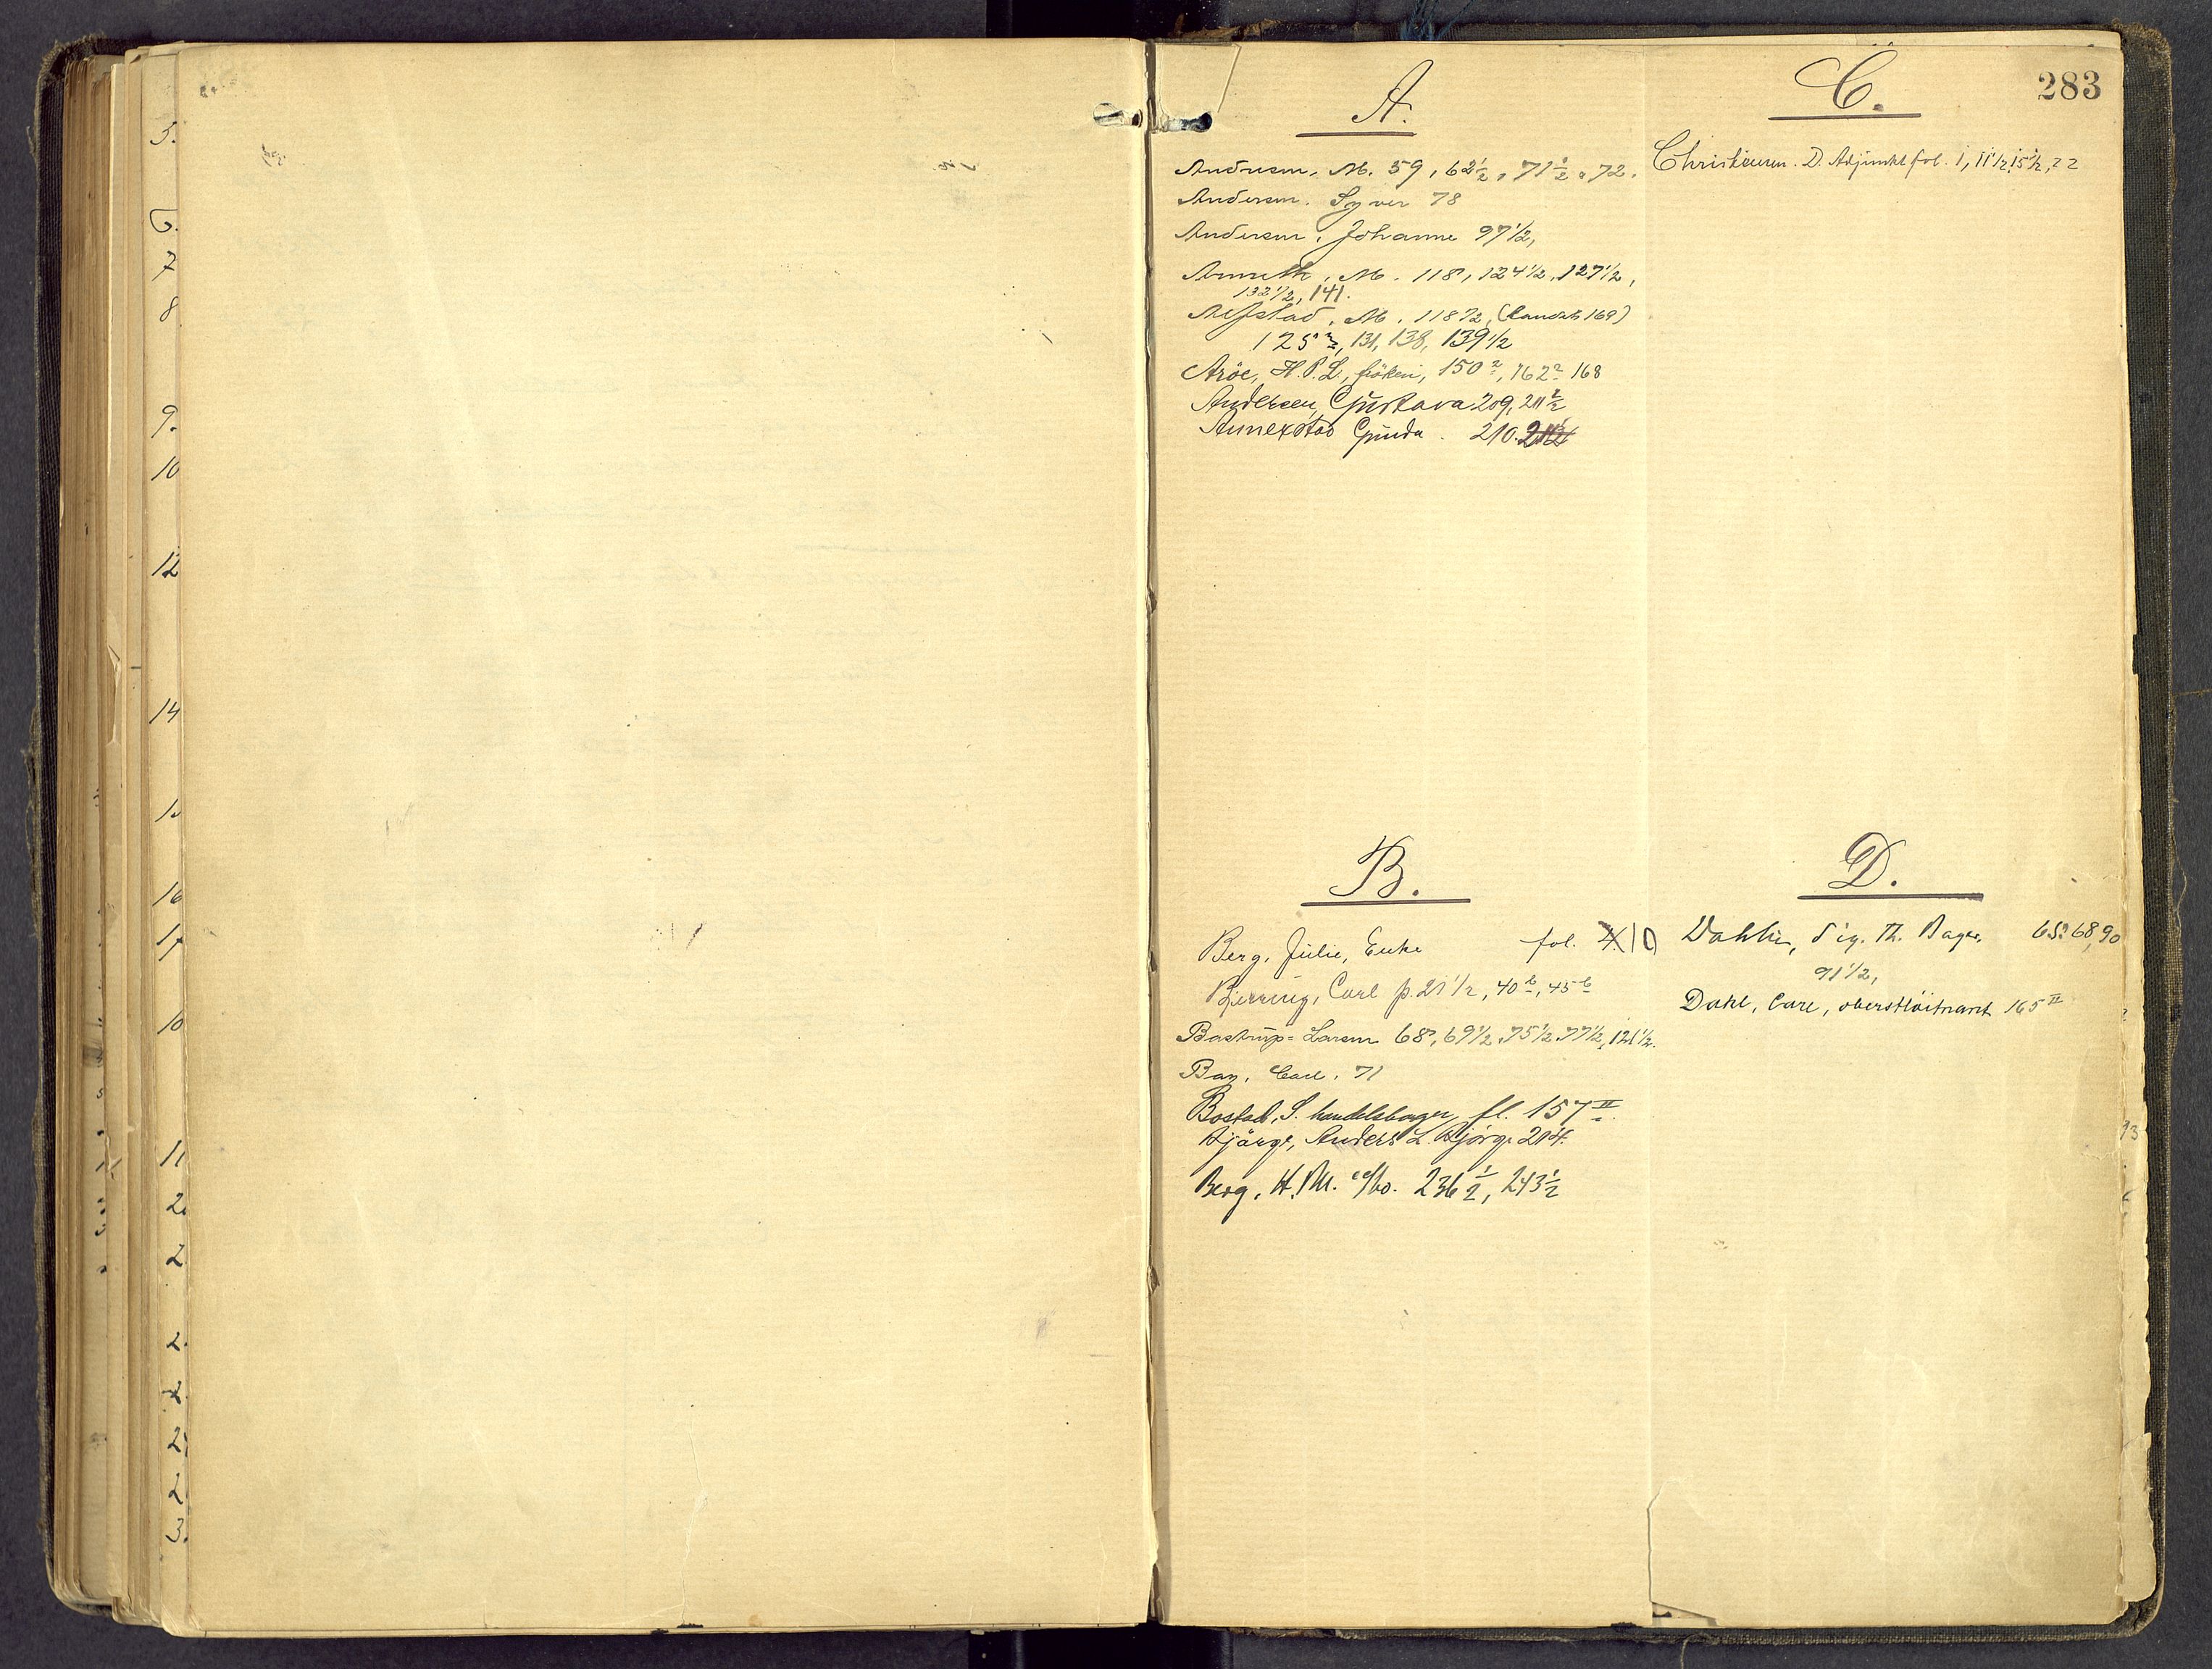 5.
6.
7
8
9.
10
12
14
1
16
17
10
11
2
2
2.
2
2
2
3.
283
A.
Andresen, M. 59, 62 1/2, 71 1/2, 72.
Andersen. Syver 78
Andersen, Johanne 97 1/2,
M. 118, 124 1/2, 127 1/2,
132 1/2, 141.
M. 118 1/2, 169)
125 2, 131, 138, 139 1/2
Aröe, H. P. L., fröken, 150 2, 162 2 168
Andersen, Gustava 209, 211 1/2
Annexstad Gunda. 210. 211 1/2
B.
Berg, Julie, Enke fol. 4. 10
Bjerring, Carl p. 21 1/2, 40 b, 45 b
Bastrup-Larsen 68, 69 1/2, 75 1/2, 77 1/2, 121 1/2.
Bay, Carl, 71
Bostad, S. handelsbager, fl. 157 II.
Bjørge, Anders L. Bjørge 204.
Berg, H. M. 236 1/2, 243 1/2
C.
Christensen. D. Adjunkt fol. 1, 11 1/2, 15 1/2, 22
D.
Dahlin, Sig. Th. Bager, 65 2 68, 90
91 1/2,
Dahl, Carl, oberstløitnant 165 II